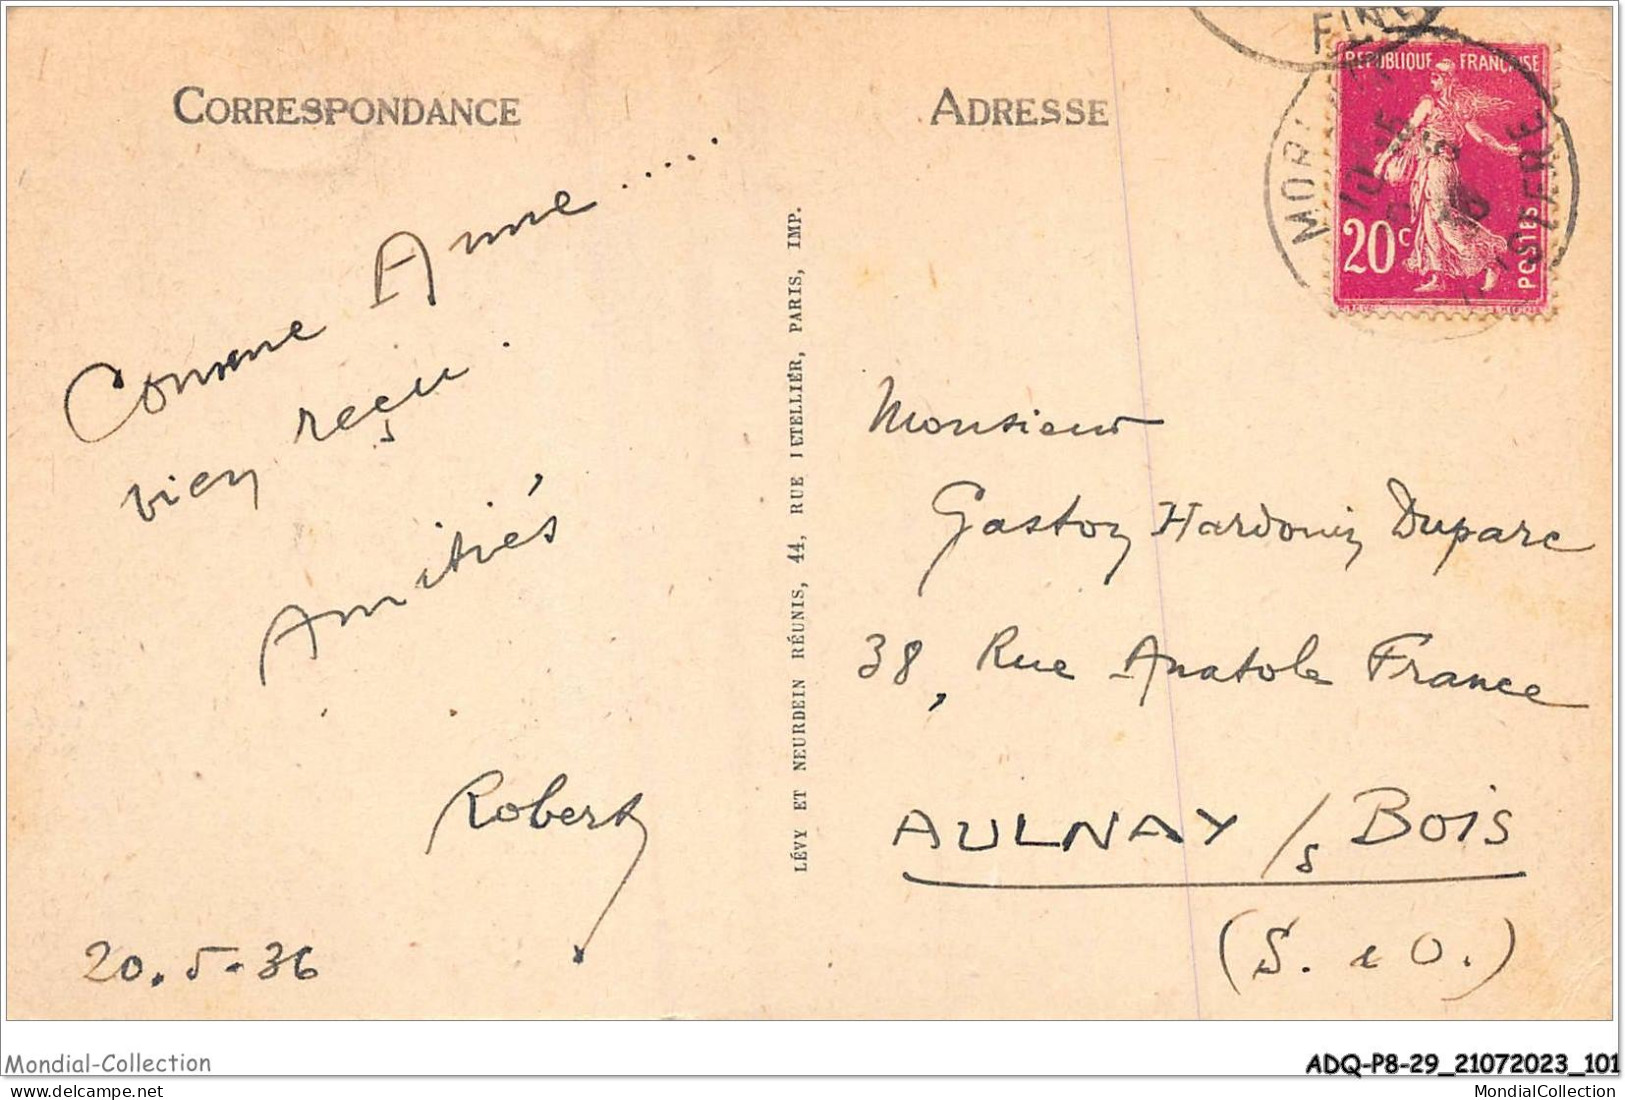 CORRESPONDANCE
Comme Anne .....
bien reçu.
Amitiés
Robert
20.5.36
LÉVY ET NEURDEIN RÉUNIS, 44, RUE LETELLIER, PARIS, IMP.
ADRESSE
RÉPUBLIQUE FRANÇAISE
20c
POSTES
Monsieur
Gaston Hardouin Duparc
38, Rue Anatole France
AULNAY /s BOIS
(S. e O.)
Mondial-Collection
ADQ-P8-29_21072023_101
MondialCollection